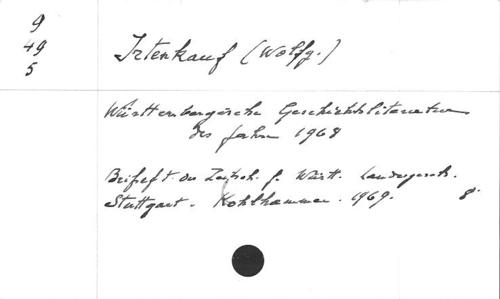 9
49
5
Irtenkauf (Wolfg.)
Württembergische Geschichtsliteratur
des Jahres 1968
Beiheft der Zeitsch. f. Württ. Landesgesch.
Stuttgart. Kohlhammer. 1969. 8°